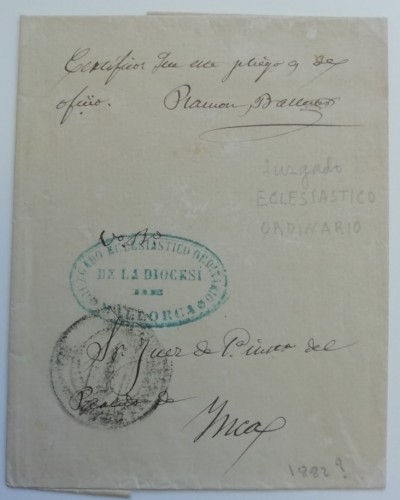 Certifico: Que un pliego es de
oficio. Ramon Ballester
Juzgado
ECLESIASTICO
ORDINARIO
Vo. Bo.
JUZGADO ECLESIASTICO ORDINARIO
DE LA DIOCESI
DE
MALLORCA
Sr. Juez de 1a. insta del
Partido de
Inca
1882?